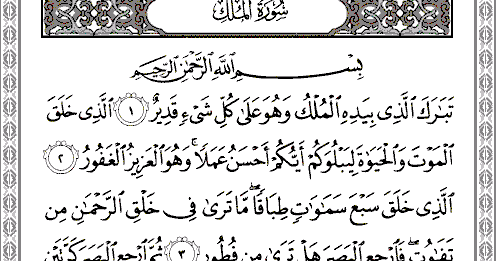 سُورَةُ المُلْكِ
بِسْمِ اللَّهِ الرَّحْمَٰنِ الرَّحِيمِ
تَبَارَكَ الَّذِى بِيَدِهِ الْمُلْكُ وَهُوَ عَلَىٰ كُلِّ شَىْءٍ قَدِيرٌ ١ الَّذِى خَلَقَ
الْمَوْتَ وَالْحَيَوٰةَ لِيَبْلُوَكُمْ أَيُّكُمْ أَحْسَنُ عَمَلًا ۚ وَهُوَ الْعَزِيزُ الْغَفُورُ ٢
الَّذِى خَلَقَ سَبْعَ سَمَٰوَٰتٍ طِبَاقًا ۖ مَّا تَرَىٰ فِى خَلْقِ الرَّحْمَٰنِ مِن
تَفَٰوُتٍ ۖ فَارْجِعِ الْبَصَرَ هَلْ تَرَىٰ مِن فُطُورٍ ٣ ثُمَّ ارْجِعِ الْبَصَرَ كَرَّتَيْنِ